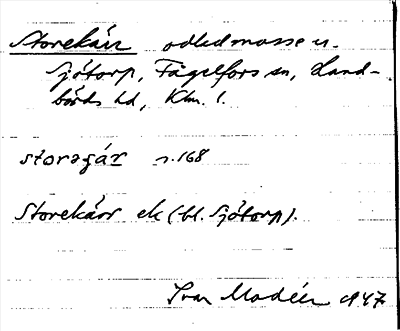 Storekärr odlad mosse u.
Sjötorp, Fågelfors sn, Hand-
börds hd, Klm. l.
storagár s.168
Storekärr ek (bl. Sjötorp).
Ivar Modéer 1947